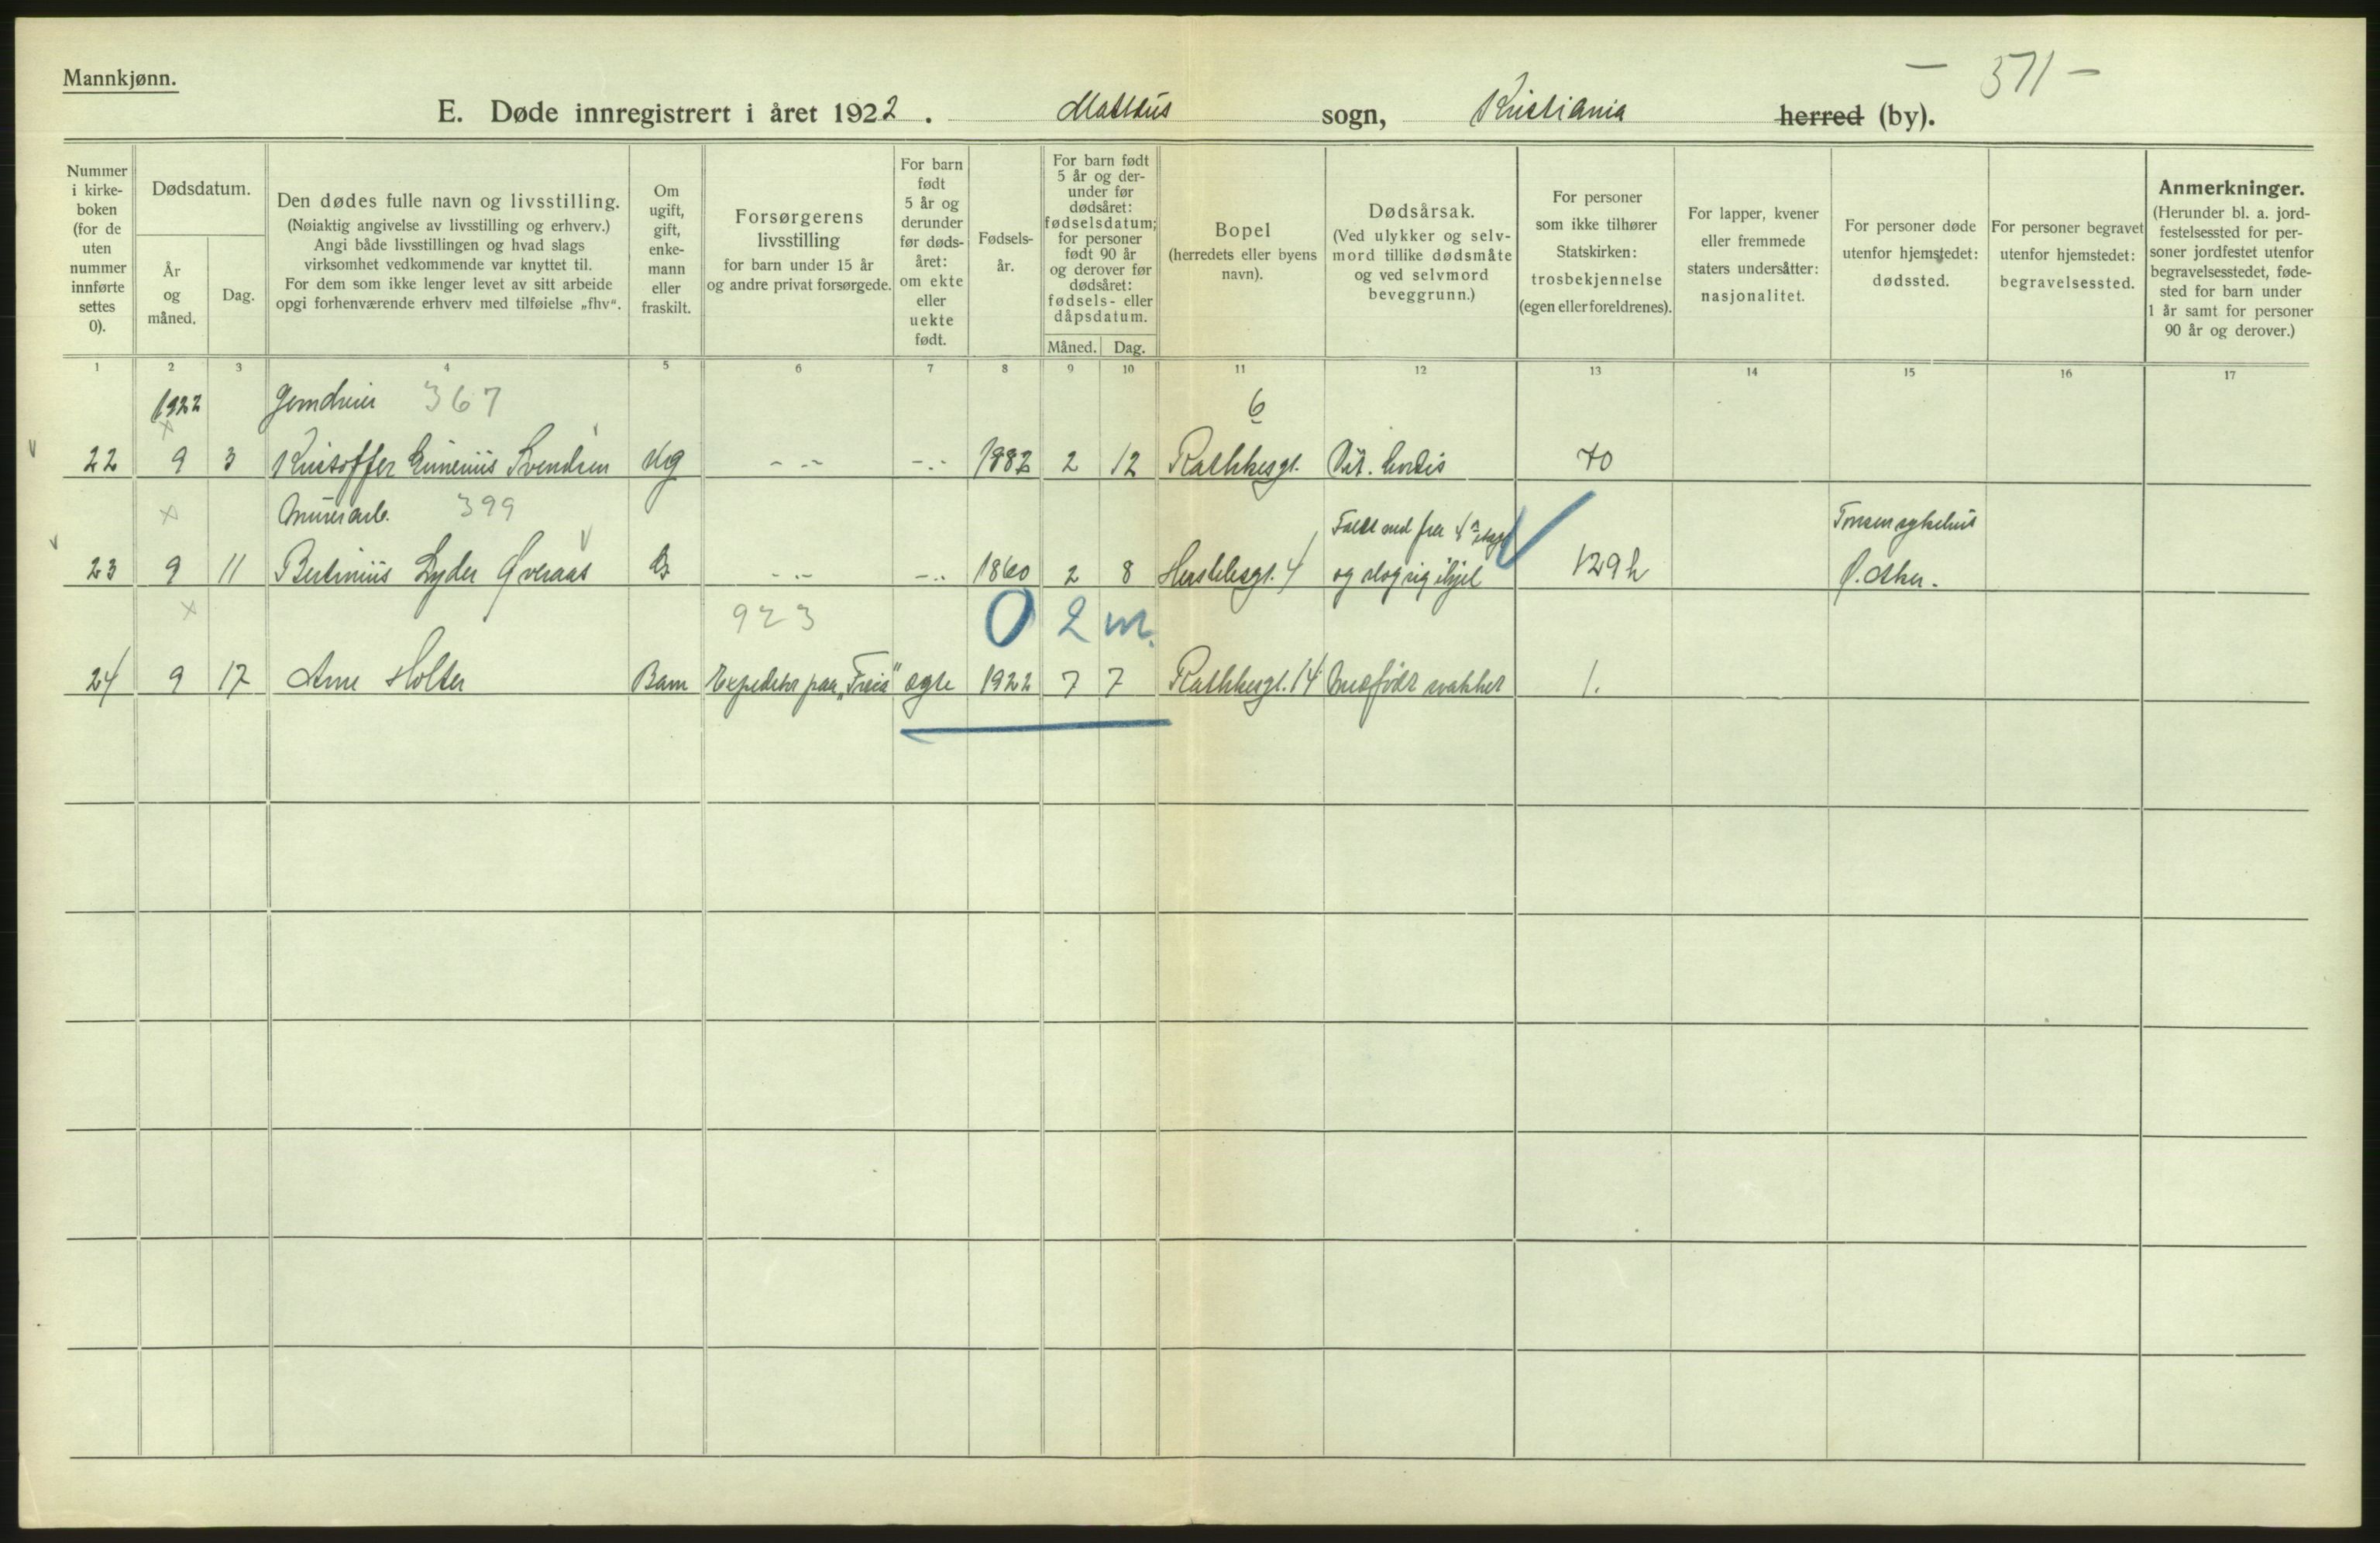 Mannkjønn.
— 371 —
E. Døde innregistrert i året 1922. Mattæus sogn, Kristiania herred (by).
Nummer
i kirke-
boken
(for de
uten
nummer
innførte
settes
0).
Dødsdatum.
År
og
måned.
Dag.
Den dødes fulle navn og livsstilling.
(Nøiaktig angivelse av livsstilling og erhverv.)
Angi både livsstillingen og hvad slags
virksomhet vedkommende var knyttet til.
For dem som ikke lenger levet av sitt arbeide
opgi forhenværende erhverv med tilføielse „fhv“.
Om
ugift,
gift,
enke-
mann
eller
fraskilt.
Forsørgerens
livsstilling
for barn under 15 år
og andre privat forsørgede.
For barn
født
5 år og
derunder
før døds-
året:
om ekte
eller
uekte
født.
Fødsels-
år.
For barn født
5 år og der-
under før
dødsåret:
fødselsdatum;
for personer
født 90 år
og derover før
dødsåret:
fødsels- eller
dåpsdatum.
Måned. Dag.
Bopel
(herredets eller byens
navn).
Dødsårsak.
(Ved ulykker og selv-
mord tillike dødsmåte
og ved selvmord
beveggrunn.)
For personer
som ikke tilhører
Statskirken:
trosbekjennelse
(egen eller foreldrenes).
For lapper, kvener
eller fremmede
staters undersåtter:
nasjonalitet.
For personer døde
utenfor hjemstedet:
dødssted.
For personer begravet
utenfor hjemstedet:
begravelsessted.
Anmerkninger.
(Herunder bl. a. jord-
festelsessted for per-
soner jordfestet utenfor
begravelsesstedet, føde-
sted for barn under
1 år samt for personer
90 år og derover.)
1 2 3 4 5 6 7 8 9 10 11 12 13 14 15 16 17
1922 367 6
22 9 3 Kristoffer Svendsen Ug - .- -.- 1882 2 12 Rathkesgt. Vit. Cordis 70
x Murerarb. 399 Faldt ned fra 4de etage Tonsen sykehus
23 9 11 Bertinius Lyder Øveraas G - .- - .. 1860 2 8 Herslebsgt. 4 og slog sig ihjel 129h Ø. Aker.
x 923 0 2 m.
24 9 17 Arne Holter Barn Expeditør paa „Freia“ ægte 1922 7 7 Rathkesgt. 14 Medfødt svakhet 1.